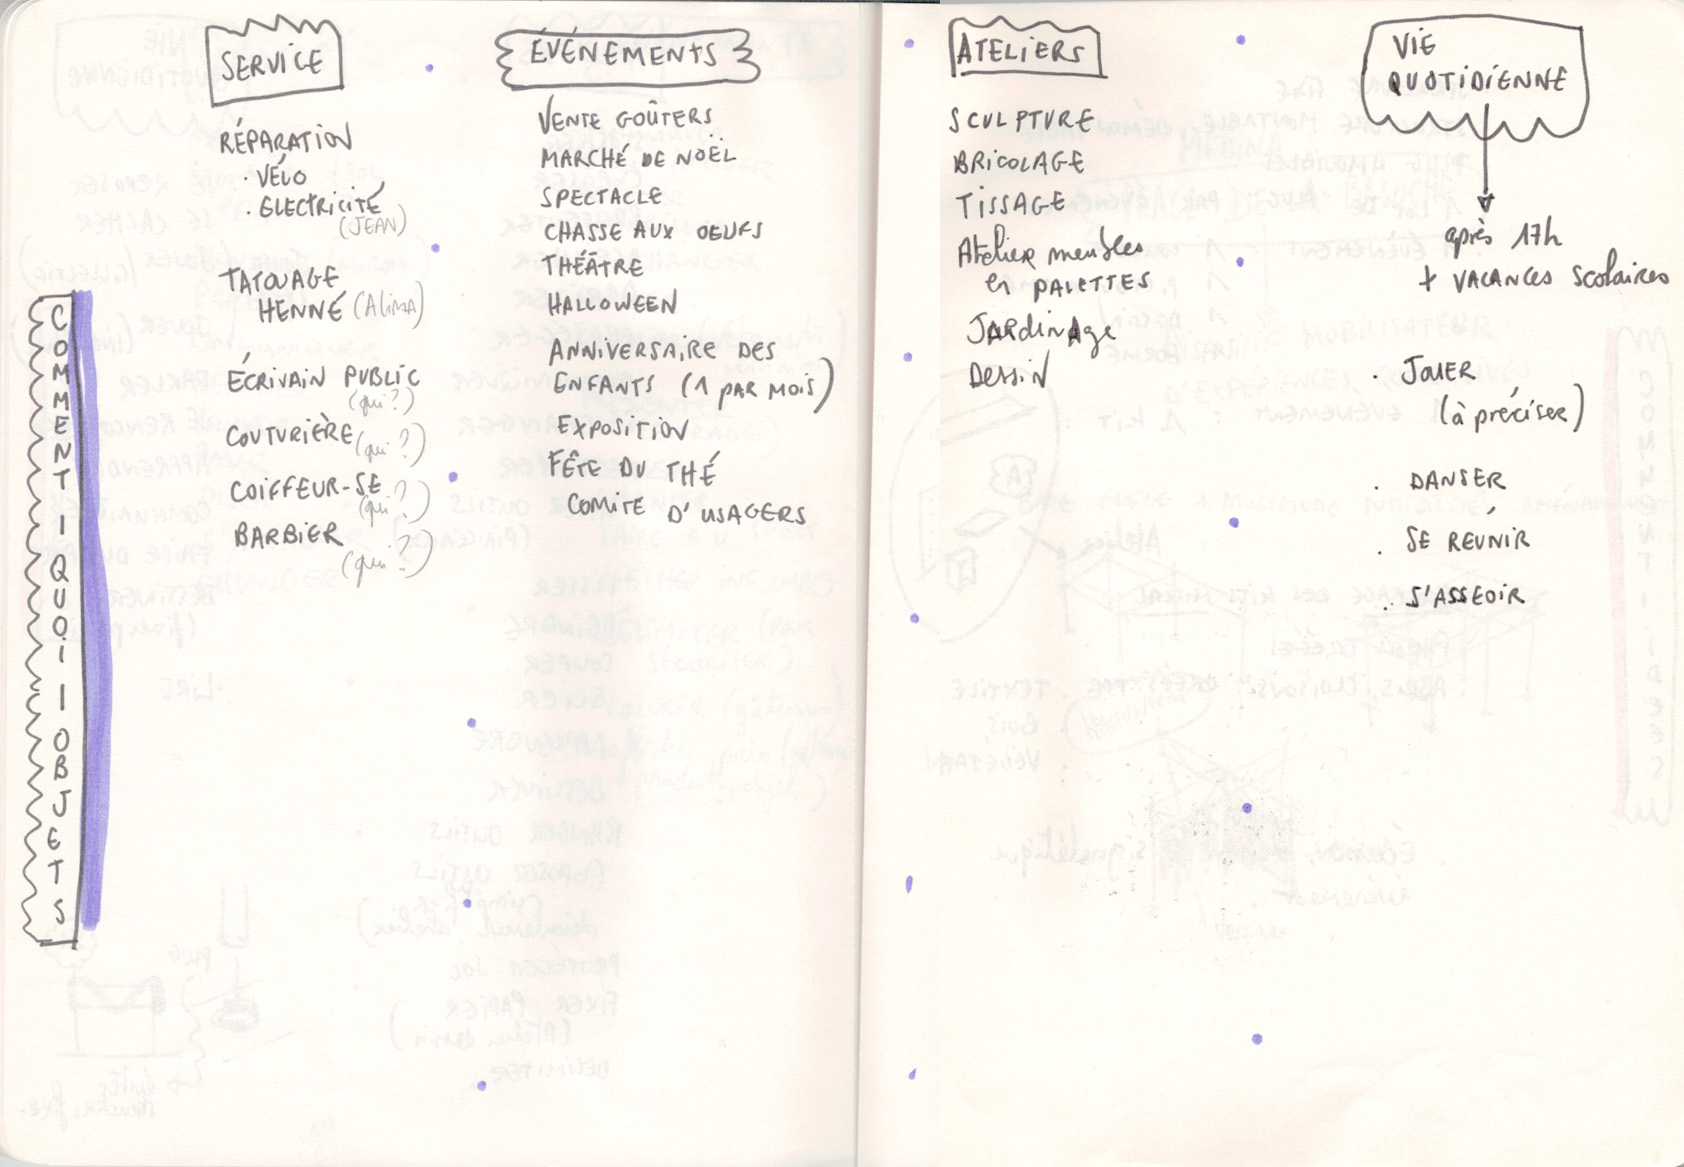 COMMENT ? QUOI ? OBJETS
SERVICE
RÉPARATION
· VÉLO
· ÉLECTRICITÉ
(JEAN)
TATOUAGE
HENNÉ (Alima)
ÉCRIVAIN PUBLIC
(qui?)
COUTURIÈRE (qui?)
COIFFEUR-SE
(qui?)
BARBIER
(qui?)
ÉVÉNEMENTS
VENTE GOÛTERS
MARCHÉ DE NOËL
SPECTACLE
CHASSE AUX OEUFS
THÉÂTRE
HALLOWEEN
ANNIVERSAIRE DES
ENFANTS (1 PAR MOIS)
EXPOSITION
FÊTE DU THÉ
COMITE D'USAGERS
ATELIERS
SCULPTURE
BRICOLAGE
TISSAGE
Atelier meubles
en PALETTES
JARdinAge
Dessin
VIE
QUOTIDIENNE
après 17h
+ VACANCES Scolaires
· JOUER
(à préciser)
· DANSER
· SE RÉUNIR
· S'ASSEOIR